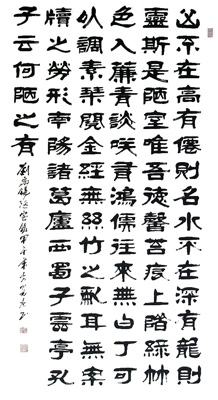 山不在高有僊則名水不在深有龍則
靈斯是陋室唯吾德馨苔痕上階綠艸
色入簾青談咲有鴻儒往來無白丁可
以調素琴閱金經無絲竹之亂耳無案
牘之勞形南陽諸葛廬西蜀子雲亭孔
子云何陋之有
劉禹錫陋室銘